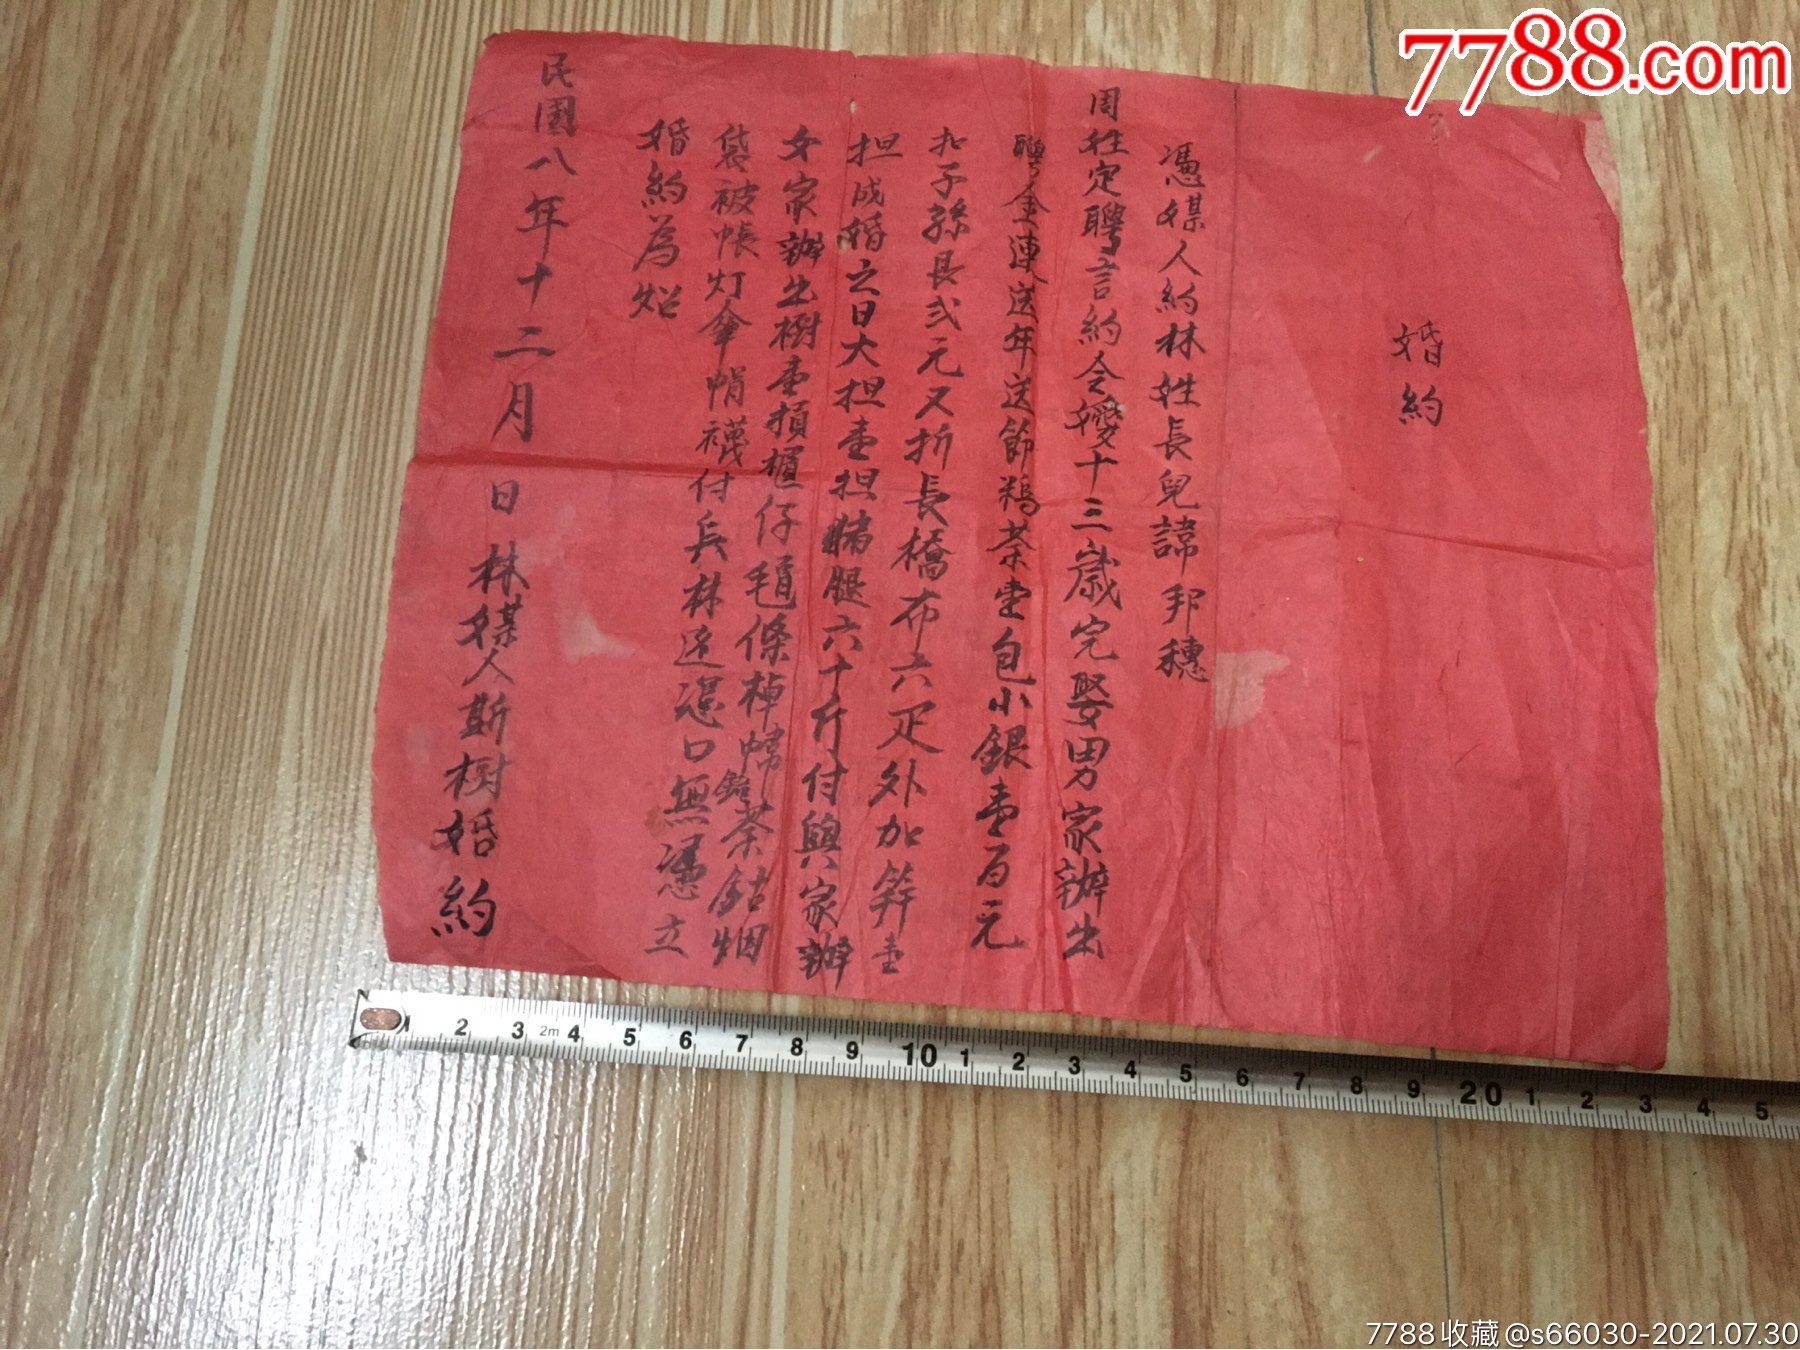 婚約
憑媒人約林姓長兒諱邦穗
周姓定聘言約令嬡十三歲完娶男家辦出
聘金連送年送節鷄茶壹包小銀壹百元
扣子絲長弍元又折長橋布六疋外加筭壹
担成婚之日大担壹担猪腿六十斤付與家辦
女家辦出樹壹損櫃仔毡條棹幃錫茶鈷烟
袋被帳灯傘帽襪付兵林 憑口無憑立
婚約為炤
民國八年十二月 日 林媒人斯樹婚約
7788.com
1 2 3 2m 4 5 6 7 8 9 10 1 2 3 4 5 6 7 8 9 20 1 2 3 4 5
7788收藏@s66030-2021.07.30